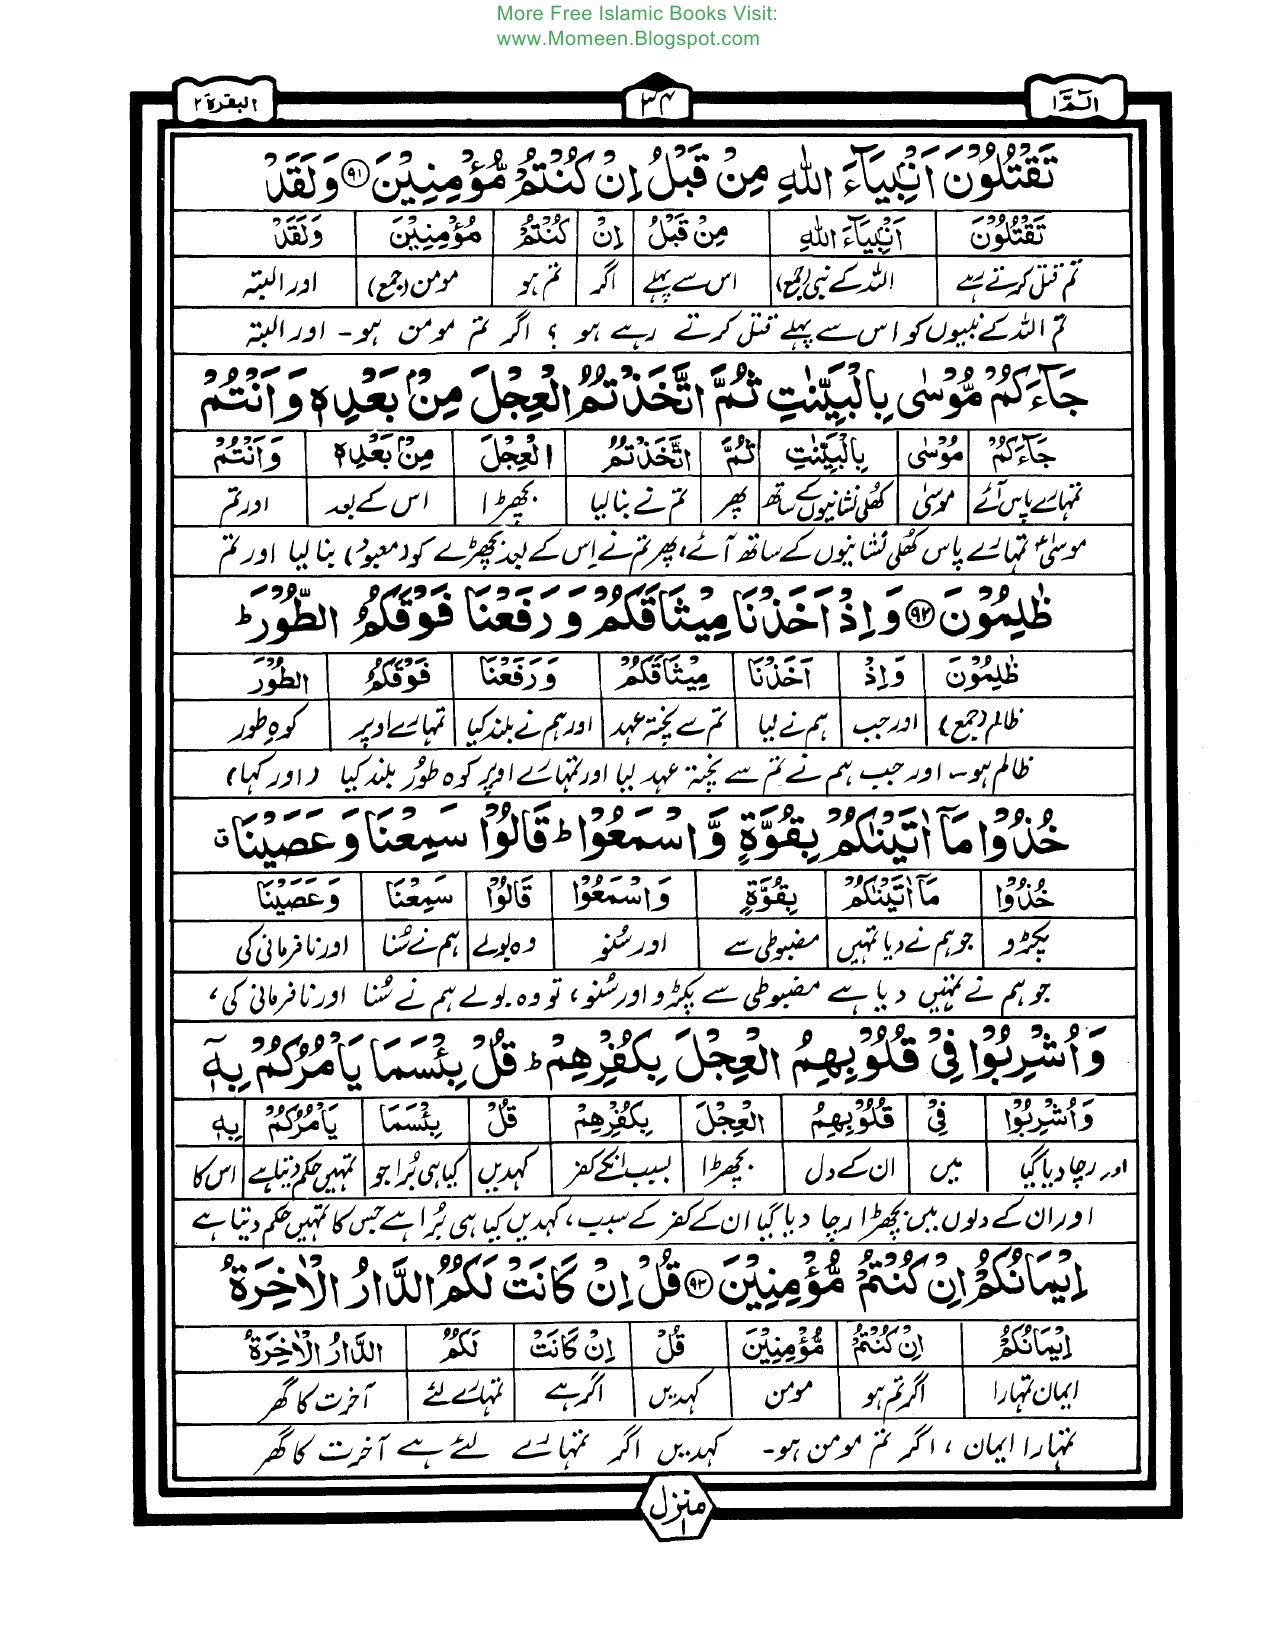 More Free Islamic Books Visit:
www.Momeen.Blogspot.com
الٓمّٓ ۱
۳۴
البقرة ۲
تَقْتُلُوْنَ اَنْۢبِيَآءَ اللّٰهِ مِنْ قَبْلُ اِنْ كُنْتُمْ مُّؤْمِنِيْنَ ۹۱ وَلَقَدْ
تَقْتُلُوْنَ اَنْۢبِيَآءَ اللّٰهِ مِنْ قَبْلُ اِنْ كُنْتُمْ مُؤْمِنِيْنَ وَلَقَدْ
تم قتل کرتے رہے اللہ کے نبی (جمع) اس سے پہلے اگر تم ہو مومن (جمع) اور البتہ
تم اللہ کے نبیوں کو اس سے پہلے قتل کرتے رہے ہو ؟ اگر تم مومن ہو - اور البتہ
جَآءَكُمْ مُّوْسٰى بِالْبَيِّنٰتِ ثُمَّ اتَّخَذْتُمُ الْعِجْلَ مِنْۢ بَعْدِهٖ وَاَنْتُمْ
جَآءَكُمْ مُوْسٰى بِالْبَيِّنٰتِ ثُمَّ اتَّخَذْتُمُ الْعِجْلَ مِنْۢ بَعْدِهٖ وَاَنْتُمْ
تمہارے پاس آئے موسیٰ کھلی نشانیوں کے ساتھ پھر تم نے بنا لیا بچھڑا اس کے بعد اور تم
موسیٰؑ تمہارے پاس کھلی نشانیوں کے ساتھ آئے، پھر تم نے اِس کے بعد بچھڑے کو (معبود) بنا لیا اور تم
ظٰلِمُوْنَ ۹۲ وَاِذْ اَخَذْنَا مِيْثَاقَكُمْ وَرَفَعْنَا فَوْقَكُمُ الطُّوْرَ ط
ظٰلِمُوْنَ وَاِذْ اَخَذْنَا مِيْثَاقَكُمْ وَرَفَعْنَا فَوْقَكُمُ الطُّوْرَ
ظالم (جمع) اور جب ہم نے لیا تم سے پختہ عہد اور ہم نے بلند کیا تمہارے اوپر کوہِ طور
ظالم ہو۔ اور جب ہم نے تم سے پختہ عہد لیا اور تمہارے اوپر کوہ طُور بلند کیا (اور کہا)
خُذُوْا مَآ اٰتَيْنٰكُمْ بِقُوَّةٍ وَّاسْمَعُوْا ط قَالُوْا سَمِعْنَا وَعَصَيْنَا ق
خُذُوْا مَآ اٰتَيْنٰكُمْ بِقُوَّةٍ وَاسْمَعُوْا قَالُوْا سَمِعْنَا وَعَصَيْنَا
پکڑو جو ہم نے دیا تمہیں مضبوطی سے اور سُنو وہ بولے ہم نے سُنا اور نافرمانی کی
جو ہم نے تمہیں دیا ہے مضبوطی سے پکڑو اور سُنو، تو وہ بولے ہم نے سُنا اور نافرمانی کی،
وَاُشْرِبُوْا فِيْ قُلُوْبِهِمُ الْعِجْلَ بِكُفْرِهِمْ ط قُلْ بِئْسَمَا يَاْمُرُكُمْ بِهٖٓ
وَاُشْرِبُوْا فِيْ قُلُوْبِهِمُ الْعِجْلَ بِكُفْرِهِمْ قُلْ بِئْسَمَا يَاْمُرُكُمْ بِهٖٓ
اور رچا دیا گیا میں ان کے دل بچھڑا بسبب انکے کفر کہدیں کیا ہی بُرا جو تمہیں حکم دیتا ہے اس کا
اور ان کے دلوں میں بچھڑا رچا دیا گیا ان کے کفر کے سبب، کہدیں کیا ہی بُرا ہے جس کا تمہیں حکم دیتا ہے
اِيْمَانُكُمْ اِنْ كُنْتُمْ مُّؤْمِنِيْنَ ۹۳ قُلْ اِنْ كَانَتْ لَكُمُ الدَّارُ الْاٰخِرَةُ
اِيْمَانُكُمْ اِنْ كُنْتُمْ مُّؤْمِنِيْنَ قُلْ اِنْ كَانَتْ لَكُمُ الدَّارُ الْاٰخِرَةُ
ایمان تمہارا اگر تم ہو مومن کہدیں اگر ہے تمہارے لئے آخرت کا گھر
تمہارا ایمان، اگر تم مومن ہو۔ کہدیں اگر تمہارے لئے ہے آخرت کا گھر
منزل ۱